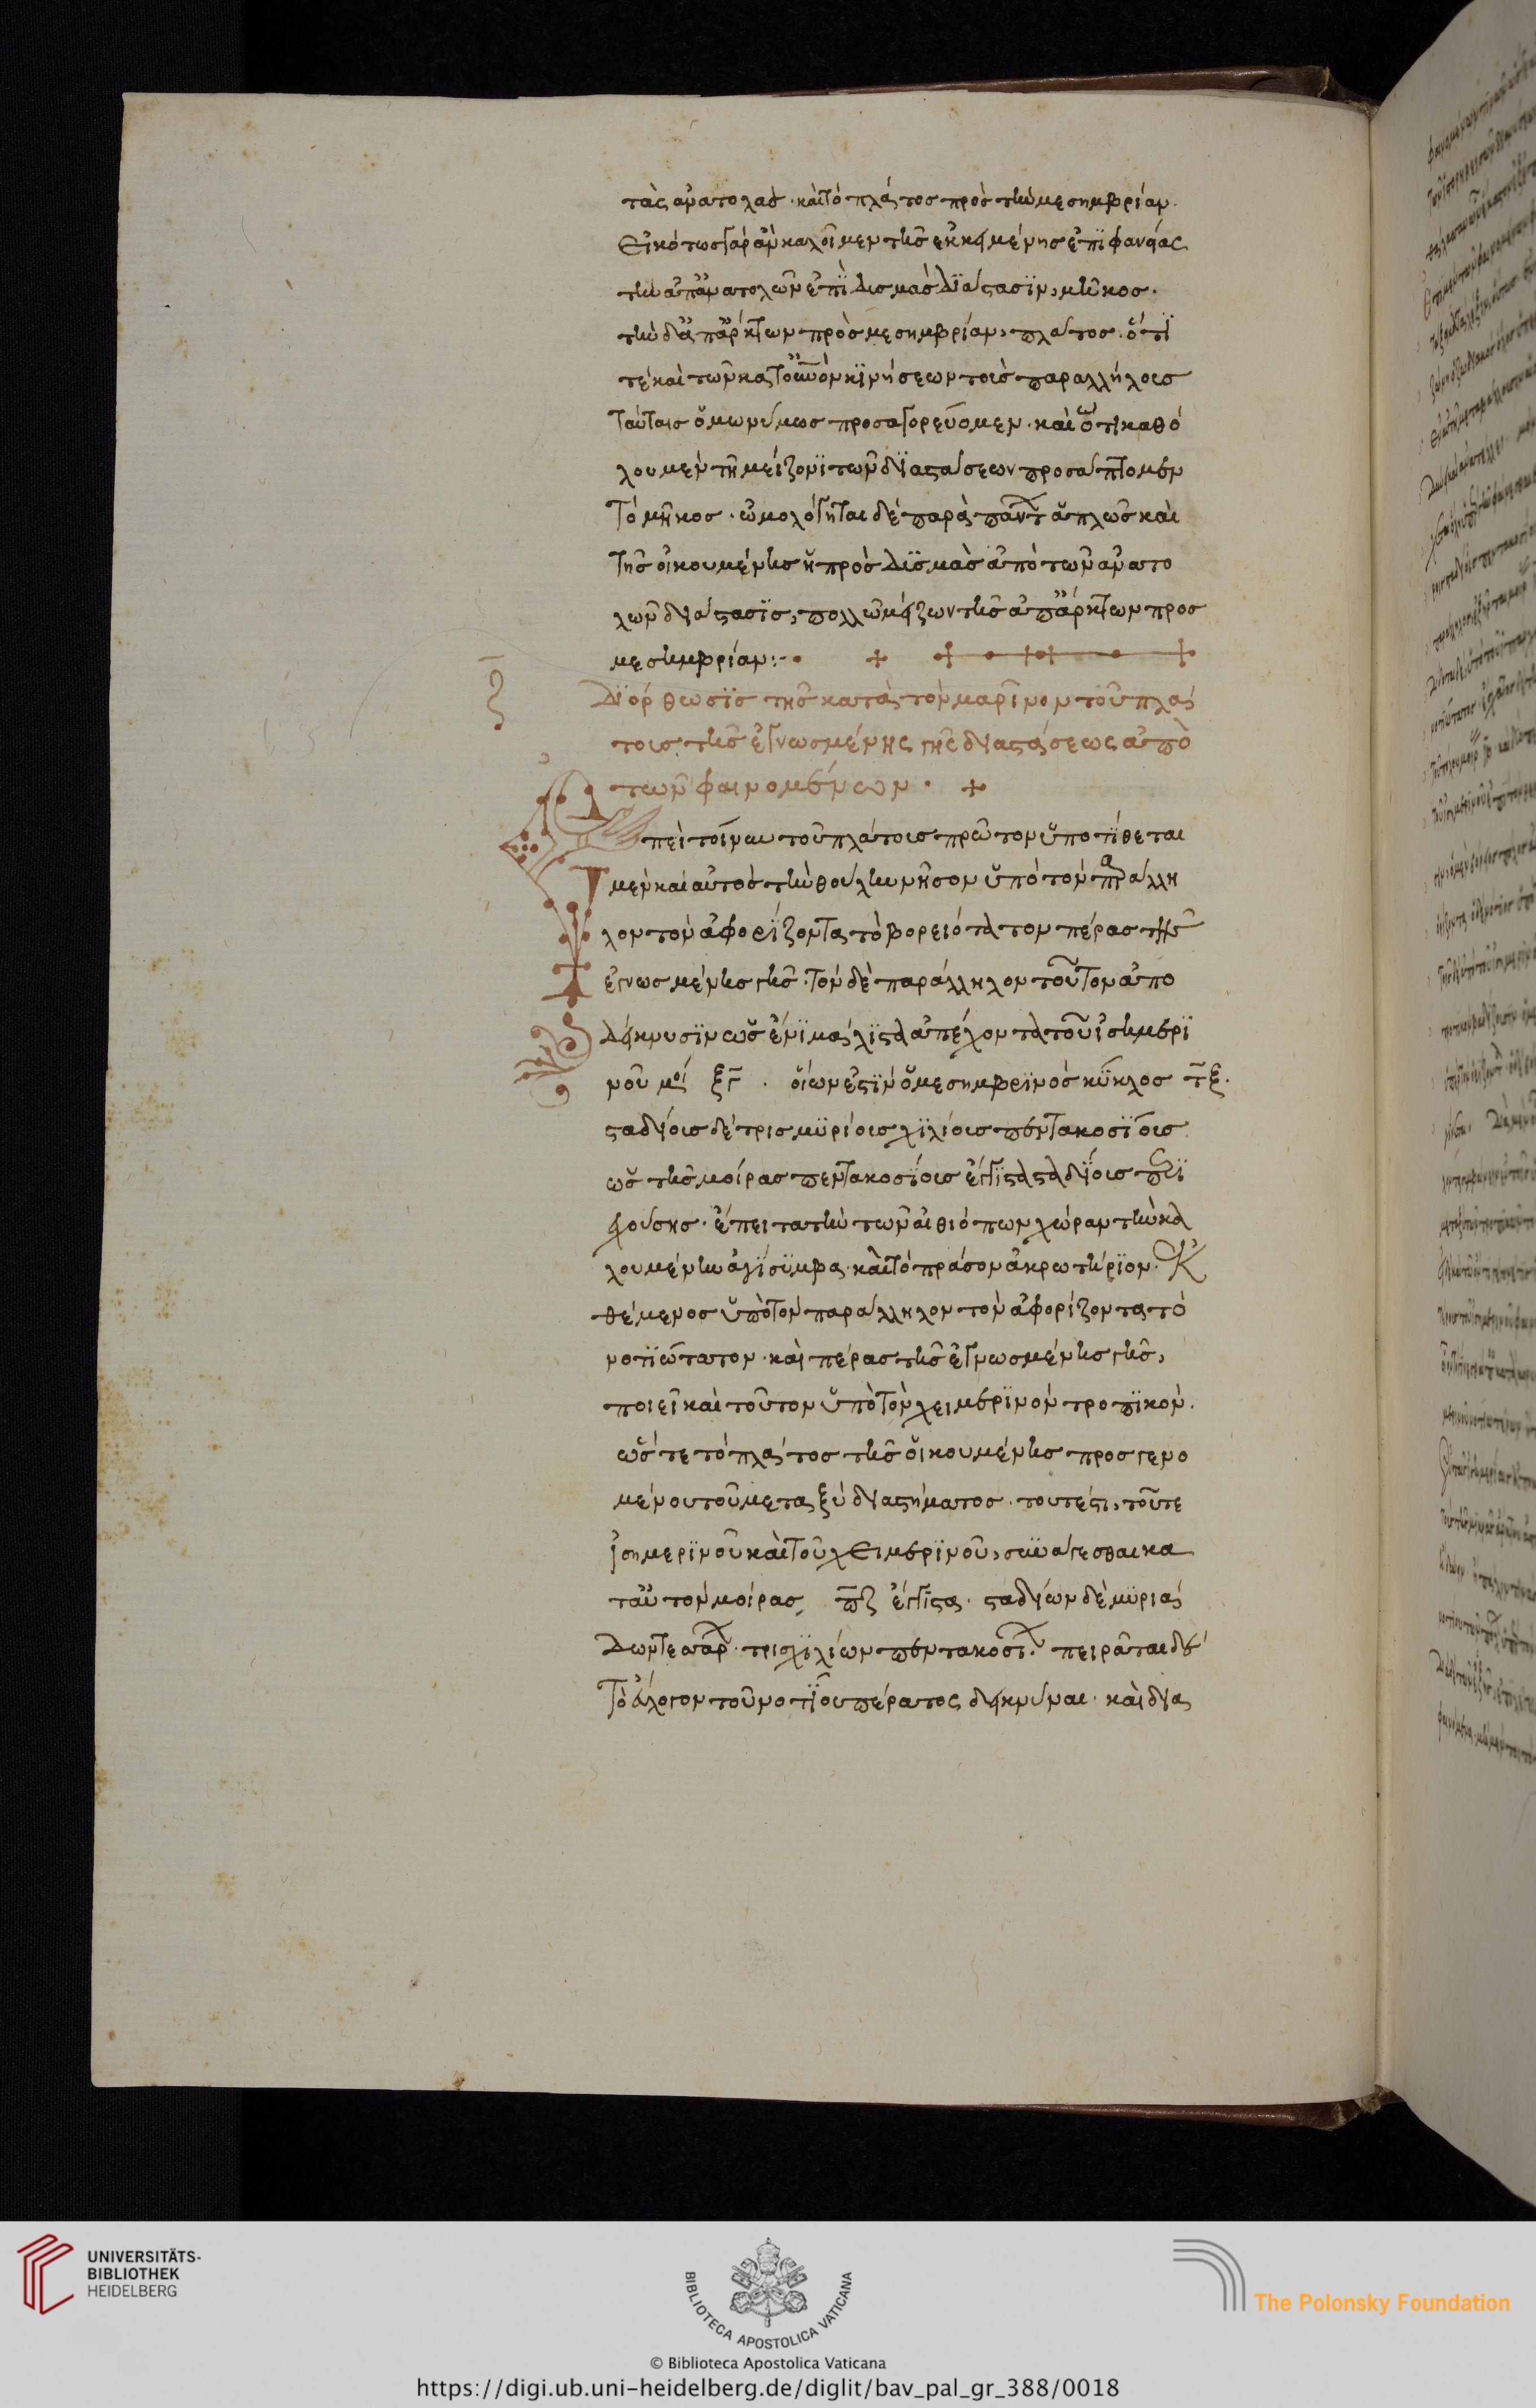 τὰς ἀνατολὰσ· καὶ τὸ πλάτοσ πρὸσ τὴν μεσημβρίαν.
Εἰκότωσ γὰρ ἂν καλοῖμεν τῆσ ἐκκειμένησ ἐπιφανείας
τὴν ἀπ' ἀνατολῶν ἐπὶ δισμὰσ διάστασιν, μῆκοσ.
τὴν δ' ἀπ' ἄρκτων πρὸσ μεσημβρίαν, πλάτοσ· ὅτι
τὲ καὶ τῶν κατ' οὐνὸν κινήσεων τοὺσ παραλλήλουσ
ταύταισ ὁμωνύμωσ προσαγορεύομεν· καὶ ὅτι καθό
λου μὲν τῆ μείζονι τῶν διαστάσεων προσάπτομεν
τὸ μῆκοσ· ὡμολόγηται δὲ παρὰ πάντων ἁπλῶσ καὶ
τῆσ οἰκουμένησ ἡ πρὸσ δισμὰσ ἀπὸ τῶν ἀνατο
λῶν διάστασισ, πολλῶ μείζων τῆσ ἀπ' ἄρκτων προσ
μεσημβρίαν:-
ζ Διόρθωσισ τῆσ κατὰ τὸν μαρῖνον τοῦ πλά
τουσ τῆσ ἐγνωσμένης γῆς διαστάσεως ἀπὸ
τῶν φαινομένων·
Ἐπεὶ τοίνυν τοῦ πλάτουσ πρῶτον ὑποτίθεται
μὲν καὶ αὐτὸσ τὴν θούλην νῆσον ὑπὸ τὸν παράλλη
λον τὸν ἀφορίζοντα τὸ βορειότατον πέρασ τῆσ
ἐγνωσμένησ γῆσ· τὸν δὲ παράλληλον τοῦτον ἀπο
δείκνυσιν ὡσ ἔνι μάλιστα ἀπέχοντα τοῦ ἰσημερι
νοῦ μοί ξγ· οἵων ἐστὶν ὁ μεσημβρινὸσ κύκλοσ τξ.
σταδίουσ δὲ τρισμυρίουσ χιλίουσ πεντακοσίουσ
ὡσ τῆσ μοίρασ πεντακοσίουσ ἔγγιστα σταδίουσ περι
εχούσησ· ἔπειτα τὴν τῶν αἰθιόπων χώραν τὴν κα
λουμένην ἀγίσυμβα· καὶ τὸ πράσον ἀκρωτήριον· κ
θέμενοσ ὑπὸ τὸν παράλληλον τὸν ἀφορίζοντα τὸ
νοτιώτατον· καὶ πέρασ τῆσ ἐγνωσμένησ γῆσ,
ποιεῖ καὶ τοῦτον ὑπὸ τὸν χειμερινὸν τροπικόν.
ὥστε τὸ πλάτοσ τῆσ οἰκουμένησ προσγενο
μένου τοῦ μεταξὺ διαστήματοσ· τουτέστι, τοῦ τε
ἰσημερινοῦ καὶ τοῦ χειμερινοῦ, συνάγεσθαι κα
τ' αὐτὸν μοίρασ πζ ἔγγιστα· σταδίων δὲ μυριά
δων τεσσάρων· τρισχιλίων πεντακοσίων· πειρᾶται δὲ
τὸ εὔλογον τοῦ νοτίου πέρατος δεικνύναι· καὶ δια
UNIVERSITÄTS-
BIBLIOTHEK
HEIDELBERG
BIBLIOTECA APOSTOLICA VATICANA
The Polonsky Foundation
© Biblioteca Apostolica Vaticana
https://digi.ub.uni-heidelberg.de/diglit/bav_pal_gr_388/0018